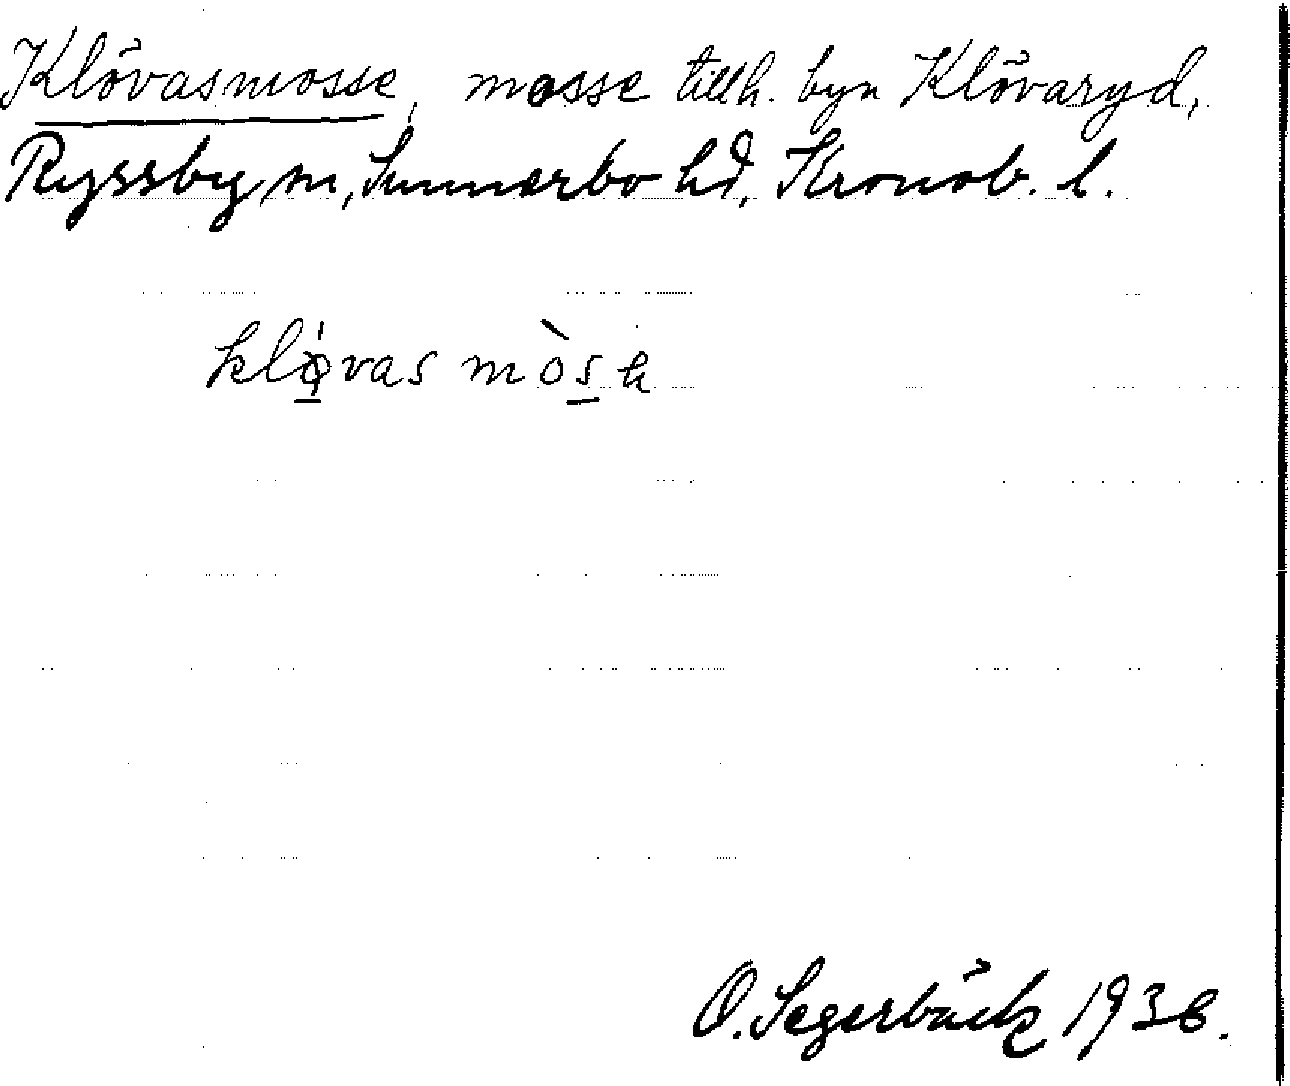 Klövasmosse, mosse tillh. byn Klövaryd,
Ryssby sn, Sunnerbo hd, Kronob. l.
klǿvas mòsh
O. Segerbäck 1936.